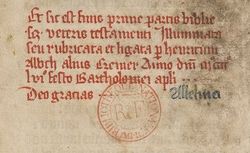 Et sic est finis prime partis biblie
scz veteris testamenti Illuminata
seu rubricata et ligata p henricum
Albch alius Cremer Anno dm̅ mcccc
lvi festo Bartholomei apli
Deo gracias Alleluia